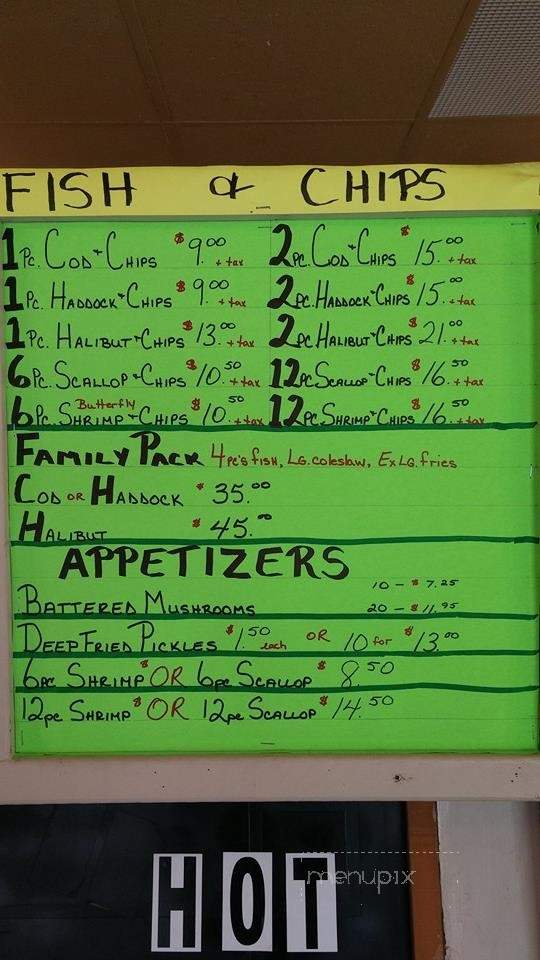 FISH & CHIPS
1 Pc. COD + CHIPS $9.00 + tax
2 PC. COD + CHIPS $15.00 + tax
1 Pc. HADDOCK + CHIPS $9.00 + tax
2 PC. HADDOCK + CHIPS $15.00 + tax
1 Pc. HALIBUT + CHIPS $13.00 + tax
2 PC HALIBUT + CHIPS $21.00 + tax
6 Pc. SCALLOP + CHIPS $10.50 + tax
12 PC SCALLOP + CHIPS $16.50 + tax
6 Pc. Butterfly SHRIMP + CHIPS $10.50 + tax
12 PC. SHRIMP + CHIPS $16.50 + tax
FAMILY PACK 4 pc's fish, LG. coleslaw, Ex LG. fries
COD OR HADDOCK $35.00
HALIBUT $45.00
APPETIZERS
BATTERED MUSHROOMS 10 - $7.25
20 - $11.95
DEEP FRIED PICKLES $1.50 each OR 10 for $13.00
6pc SHRIMP $ OR 6pc SCALLOP $8.50
12pc SHRIMP $ OR 12pc SCALLOP $14.50
HOT
menupix